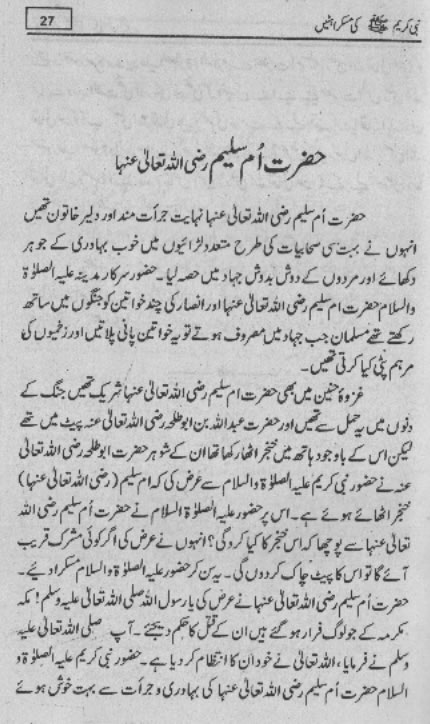 نبی کریم ﷺ کی مسکراہٹیں
27
حضرت اُم سلیم رضی اللہ تعالیٰ عنہا
حضرت اُم سلیم رضی اللہ تعالیٰ عنہا نہایت جرأت مند اور دلیر خاتون تھیں
انہوں نے بہت سی صحابیات کی طرح متعدد لڑائیوں میں خوب بہادری کے جوہر
دکھائے اور مردوں کے دوش بدوش جہاد میں حصہ لیا۔ حضور سرکار مدینہ علیہ الصلوٰۃ
والسلام حضرت ام سلیم رضی اللہ تعالیٰ عنہا اور انصار کی چند خواتین کو جنگوں میں ساتھ
رکھتے تھے مسلمان جب جہاد میں مصروف ہوتے تو یہ خواتین پانی پلاتیں اور زخمیوں کی
مرہم پٹی کیا کرتی تھیں۔
غزوۂ حنین میں بھی حضرت ام سلیم رضی اللہ تعالیٰ عنہا شریک تھیں جنگ کے
دنوں میں یہ حمل سے تھیں اور حضرت عبداللہ بن ابو طلحہ رضی اللہ تعالیٰ عنہ پیٹ میں تھے
لیکن اس کے باوجود ہاتھ میں خنجر اٹھا رکھا تھا ان کے شوہر حضرت ابو طلحہ رضی اللہ تعالیٰ
عنہ نے حضور نبی کریم علیہ الصلوٰۃ والسلام سے عرض کی کہ ام سلیم (رضی اللہ تعالیٰ عنہا)
خنجر اٹھائے ہوئے ہے۔ اس پر حضور علیہ الصلوٰۃ والسلام نے حضرت اُم سلیم رضی اللہ
تعالیٰ عنہا سے پوچھا کہ اس خنجر کا کیا کرو گی؟ انہوں نے عرض کی اگر کوئی مشرک قریب
آئے گا تو اس کا پیٹ چاک کر دوں گی۔ یہ سن کر حضور علیہ الصلوٰۃ والسلام مسکرا دیئے۔
حضرت اُم سلیم رضی اللہ تعالیٰ عنہا نے عرض کی یا رسول اللہ صلی اللہ تعالیٰ علیہ وسلم! مکہ
مکرمہ کے جو لوگ فرار ہو گئے ہیں ان کے قتل کا حکم دیجئے۔ آپ صلی اللہ تعالیٰ علیہ
وسلم نے فرمایا، اللہ تعالیٰ نے خود ان کا انتظام کر دیا ہے۔ حضور نبی کریم علیہ الصلوٰۃ و
السلام حضرت اُم سلیم رضی اللہ تعالیٰ عنہا کی بہادری و جرأت سے بہت خوش ہوئے